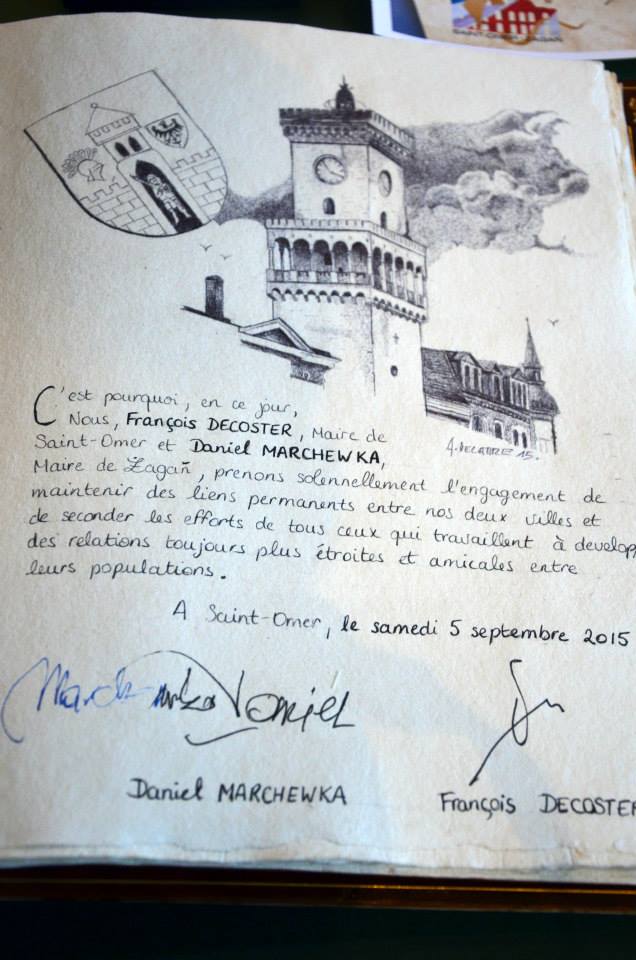 SAINT-OMER - ŻAGAŃ
C'est pourquoi, en ce jour,
Nous, François DECOSTER, Maire de
Saint-Omer et Daniel MARCHEWKA,
Maire de Żagañ, prenons solennellement l'engagement de
maintenir des liens permanents entre nos deux villes et
de seconder les efforts de tous ceux qui travaillent à develop
des relations toujours plus étroites et amicales entre
leurs populations.
A Saint-Omer, le samedi 5 septembre 2015
Daniel
Daniel MARCHEWKA
François DECOSTER